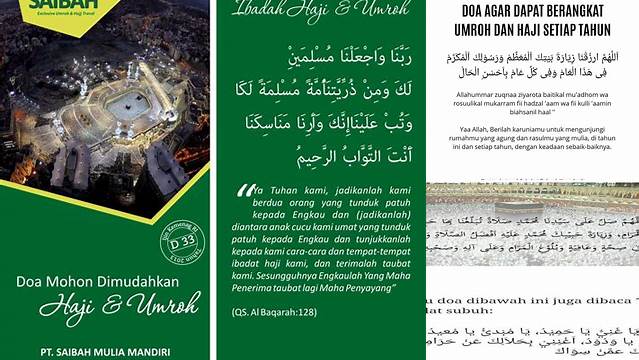 SAIBAH
Exclusive Umroh & Hajj Travel
Doa Mohon Dimudahkan
Haji & Umroh
PT. SAIBAH MULIA MANDIRI
Ibadah Haji & Umroh
رَبَّنَا وَاجْعَلْنَا مُسْلِمَيْنِ
لَكَ وَمِنْ ذُرِّيَّتِنَآأُمَّةً مُسْلِمَةً لَكَا
وَتُبْ عَلَيْنَاإِنَّكَ وَأَرِنَا مَنَاسِكَنَا
أَنْتَ التَّوَّابُ الرَّحِيمُ
“Ya Tuhan kami, jadikanlah kami
berdua orang yang tunduk patuh
kepada Engkau dan (jadikanlah)
diantara anak cucu kami umat yang tunduk
patuh kepada Engkau dan tunjukkanlah
kepada kami cara-cara dan tempat-tempat
ibadat haji kami, dan terimalah taubat
kami. Sesungguhnya Engkaulah Yang Maha
Penerima taubat lagi Maha Penyayang”
(QS. Al Baqarah:128)
DOA AGAR DAPAT BERANGKAT
UMROH DAN HAJI SETIAP TAHUN
اَللّٰهُمَّ ارْزُقْنَا زِيَارَةَ بَيْتِكَ الْمُعَظَّمْ وَرَسُوْلِكَ الْمُكَرَّمْ
فِى هٰذَا الْعَامِ وَفِى كُلِّ عَامٍ بِأَحْسَنِ الْحَالْ
Allahummar zuqnaa ziyarota baitikal mu'adhom wa
rosuulikal mukarram fii hadzal 'aam wa fii kulli 'aamin
biahsanil haal."
Yaa Allah, Berilah karuniamu untuk mengunjungi
rumahmu yang agung dan rasulmu yang mulia, di tahun
ini dan setiap tahun, dengan keadaan sebaik-baiknya.
doa dibawah ini juga dibaca
at subuh: